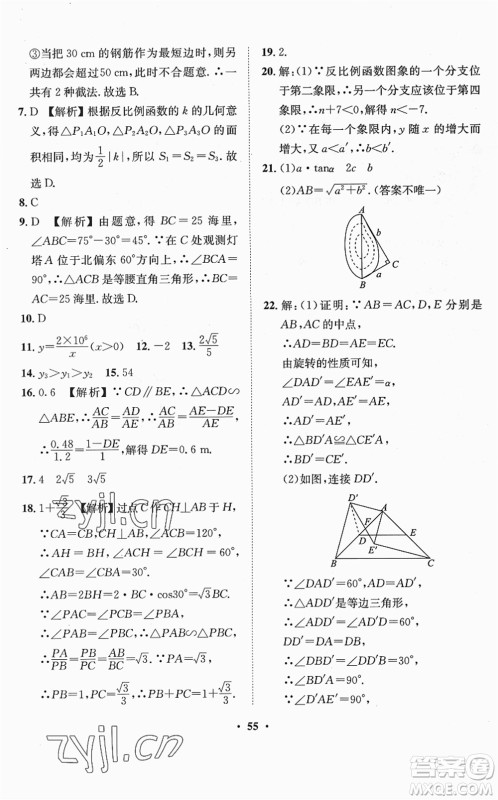 ③当把 30 cm 的钢筋作为最短边时，则另
两边都会超过 50 cm，不可能实现。∴一
共有 2 种截法。故选 B。
7. D 【解析】根据反比例函数的 k 的几何意
义，得△P₁A₁O、△P₂A₂O、△P₃A₃O 的面
积均为1/2|k|，所以 S₁＝S₂＝S₃。故
选 D。
8. C
9. D 【解析】由题意，得 BC＝25 海里，
∠ABC＝75°－30°＝45°。∵从 C 处观测灯
塔 A 位于北偏东 60°方向，∴∠ACB＝
90°。∴△ACB 是等腰直角三角形。
∴AC＝BC＝25 海里。故选 D。
10. D
11. y＝(2×10⁶)/x(x＞0) 12. －2 13. 2√5/5
14. y₃＞y₁＞y₂ 15. 54
16. 0.6 【解析】∵CD∥BE，∴△ACD∽
△ABE，∴AC/AB＝AD/AE，∴AC/AB＝(AE－DE)/AE，
∴0.48/1.2＝(1－DE)/1，解得 DE＝0.6 m。
17. 4 2√5 3√5
18. 1＋√3/3 【解析】过点 C 作 CH⊥AB 于 H，
∵CA＝CB＝1，∠ACB＝120°，
∴AH＝BH，∠CAB＝∠CBA＝30°，
∴AB＝2BH＝2·BC·cos30°＝√3，
∵∠PAC＝∠PCB＝∠PBA，
∴∠PAB＝∠PBC，∴△PAB∽△PBC，
∴PA/PB＝PB/PC＝AB/BC＝√3，∵PA＝√3，
∴PB＝1，PC＝√3/3，∴PB＋PC＝1＋√3/3。
19. 2.
20. 解：(1)∵反比例函数图象的一个分支位
于第二象限，∴另一个分支应该位于第四
象限，∴n＋7＜0，解得 n＜－7。
(2)∵在每个象限内，y 随 x 的增大而
增大，又 a＜a′，∴b＜b′。
21. (1)a·tanα 2c b
(2)AB＝√(a²＋b²)。(答案不唯一)
A
b
C
a
B
22. 解：(1)证明：∵AB＝AC，D，E 分别是
AB，AC 的中点，
∴AD＝AE＝BD＝EC。
由旋转的性质可知，
∠DAD′＝∠EAE′＝α，
AD′＝AD，AE′＝AE。
∴AD′＝AE′，
∴△BD′A≌△CE′A，
∴BD′＝CE′。
(2)如图，连接 DD′。
D′
A
F
D
E
E′
B
C
∵∠DAD′＝60°，AD＝AD′，
∴△ADD′是等边三角形，
∴∠ADD′＝∠AD′D＝60°，
∵∠BD′A＝90°，
∴∠BD′A＝90°，
• 55 •
zyjl.cn
zyjl.cn
答案圈
MXQE.COM